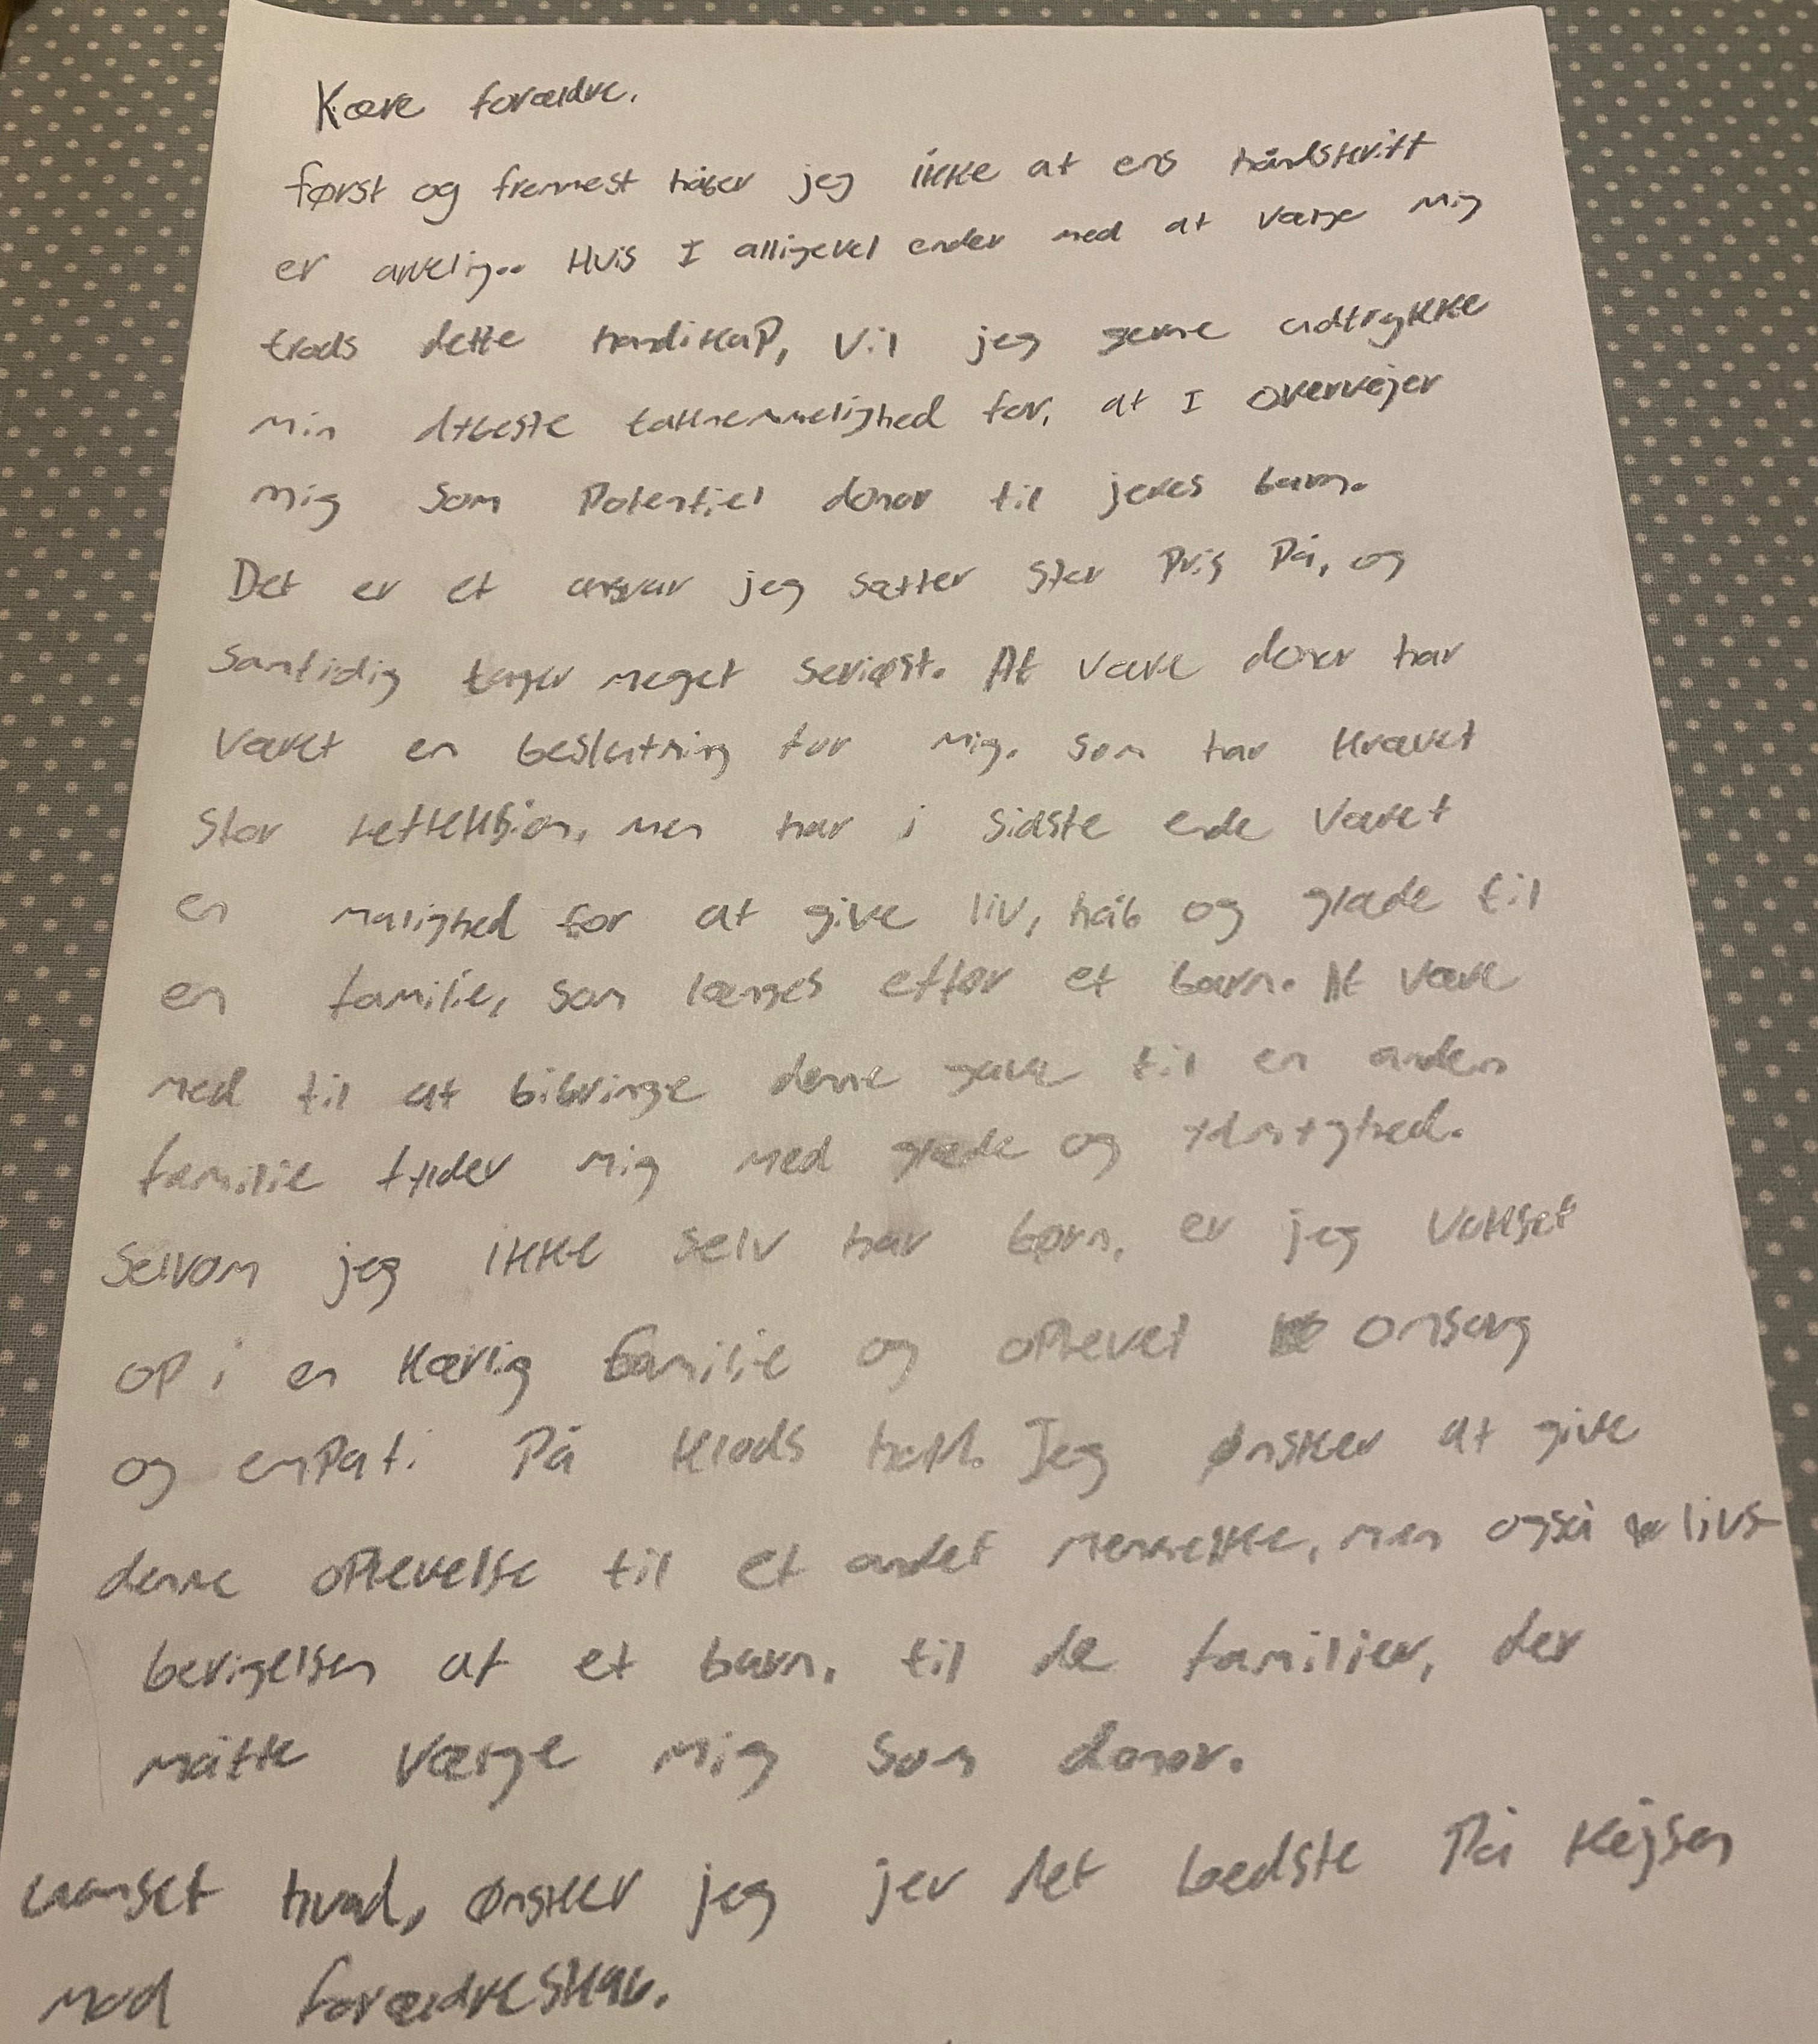 Kære forældre.
først og fremmest håber jeg ikke at ens håndskrift
er arvelig.. Hvis I alligevel ender med at vælge mig
trods dette handikap, vil jeg gerne udtrykke
min dybeste taknemmelighed for, at I overvejer
mig som potentiel donor til jeres barn.
Det er et ansvar jeg sætter stor pris på, og
samtidig tager meget seriøst. At være donor har
været en beslutning for mig, som har krævet
stor refleksion, men har i sidste ende været
en mulighed for at give liv, håb og glæde til
en familie, som længes efter et barn. At være
med til at bibringe denne gave til en anden
familie fylder mig med glæde og ydmyghed.
Selvom jeg ikke selv har børn, er jeg vokset
op i en kærlig familie og oplevet omsorg
og empati på klods hold. Jeg ønsker at give
denne oplevelse til et andet menneske, men også livs-
berigelsen af et barn, til de familier, der
måtte vælge mig som donor.
uanset hvad, ønsker jeg jer det bedste på rejsen
mod forældreskab.